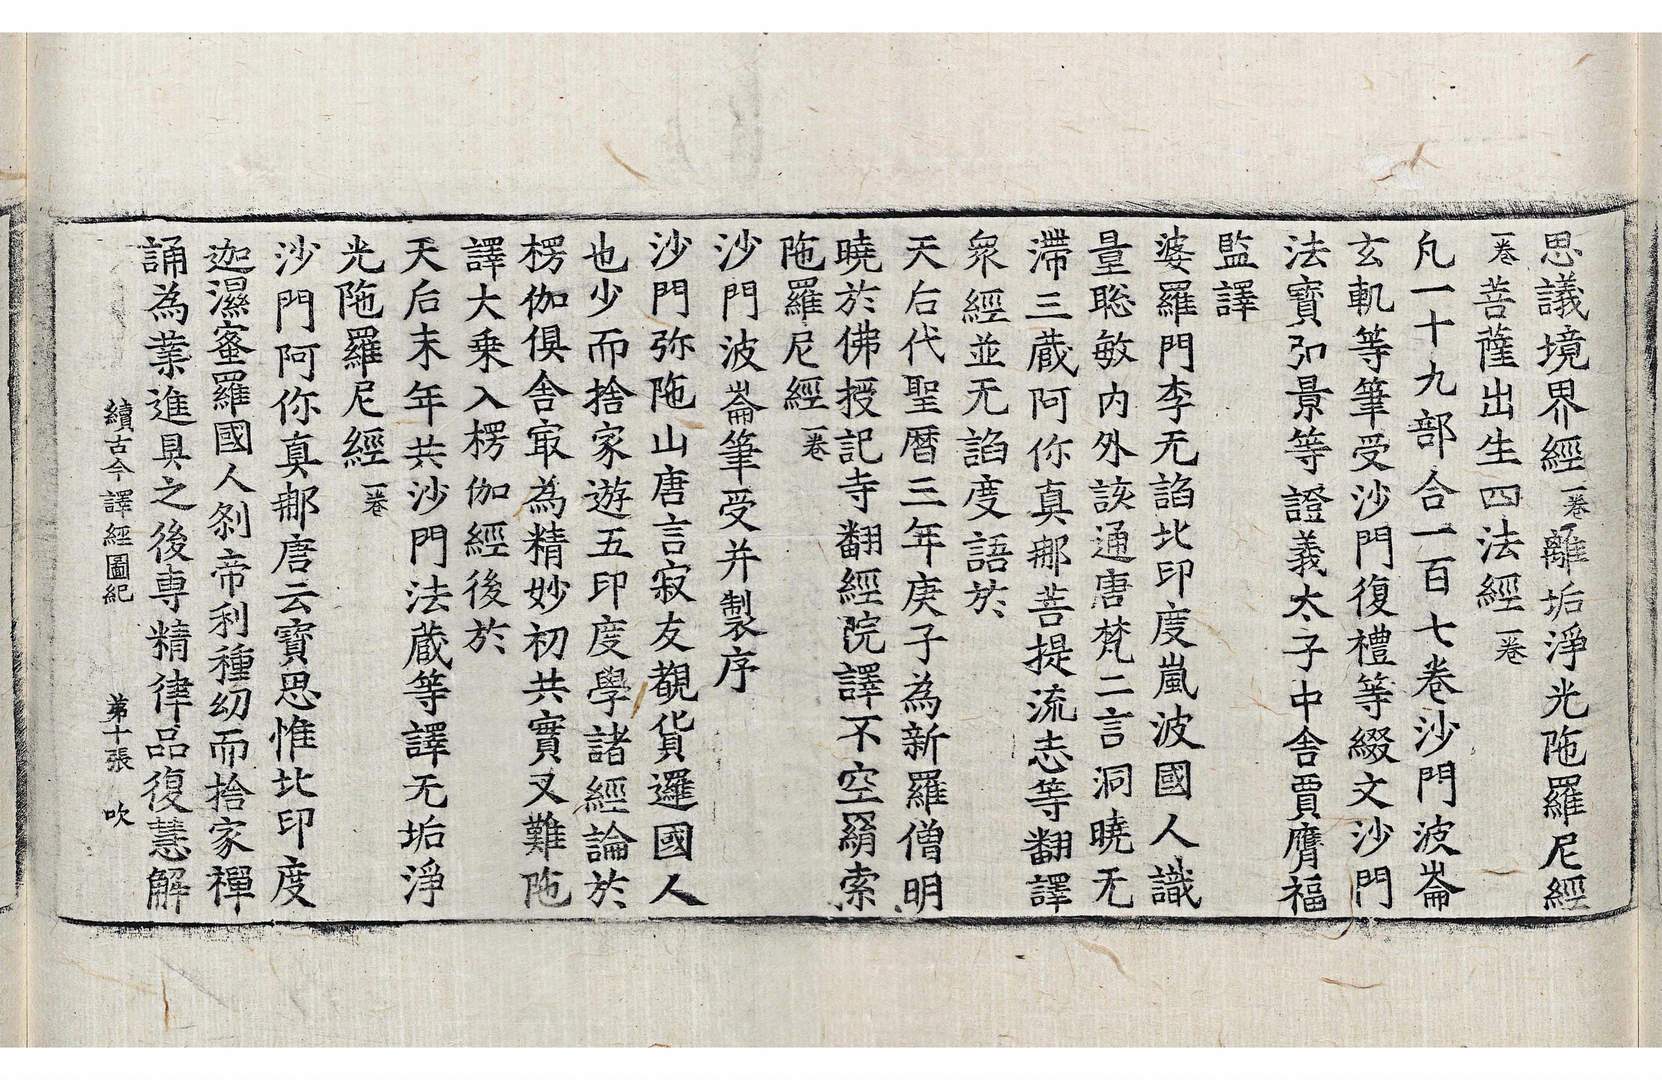 思議境界經一卷離垢淨光陁羅尼經
一卷菩薩出生四法經一卷
凡一十九部合一百七卷沙門波崙
玄軌等筆受沙門復禮等綴文沙門
法寶弘景等證義太子中舍賈膺福
監譯
婆羅門李无諂北印度嵐波國人識
量聡敏內外該通唐梵二言洞曉无
滯三蔵阿你真那菩提流志等翻譯
衆經並无諂度語於
天后代聖曆三年庚子為新羅僧明
曉於佛授記寺翻經院譯不空羂索
陁羅尼經一卷
沙門波崙筆受并製序
沙門弥陁山唐言寂友覩貨邏國人
也少而捨家遊五印度學諸經論於
楞伽俱舍㝡為精妙初共實叉難陁
譯大乗入楞伽經後於
天后末年共沙門法蔵等譯无垢淨
光陁羅尼經一卷
沙門阿你真那唐云寶思惟北印度
迦濕蜜羅國人剎帝利種幼而捨家禪
誦為業進具之後専精律品復慧解
續古今譯經圖紀 第十張 吹